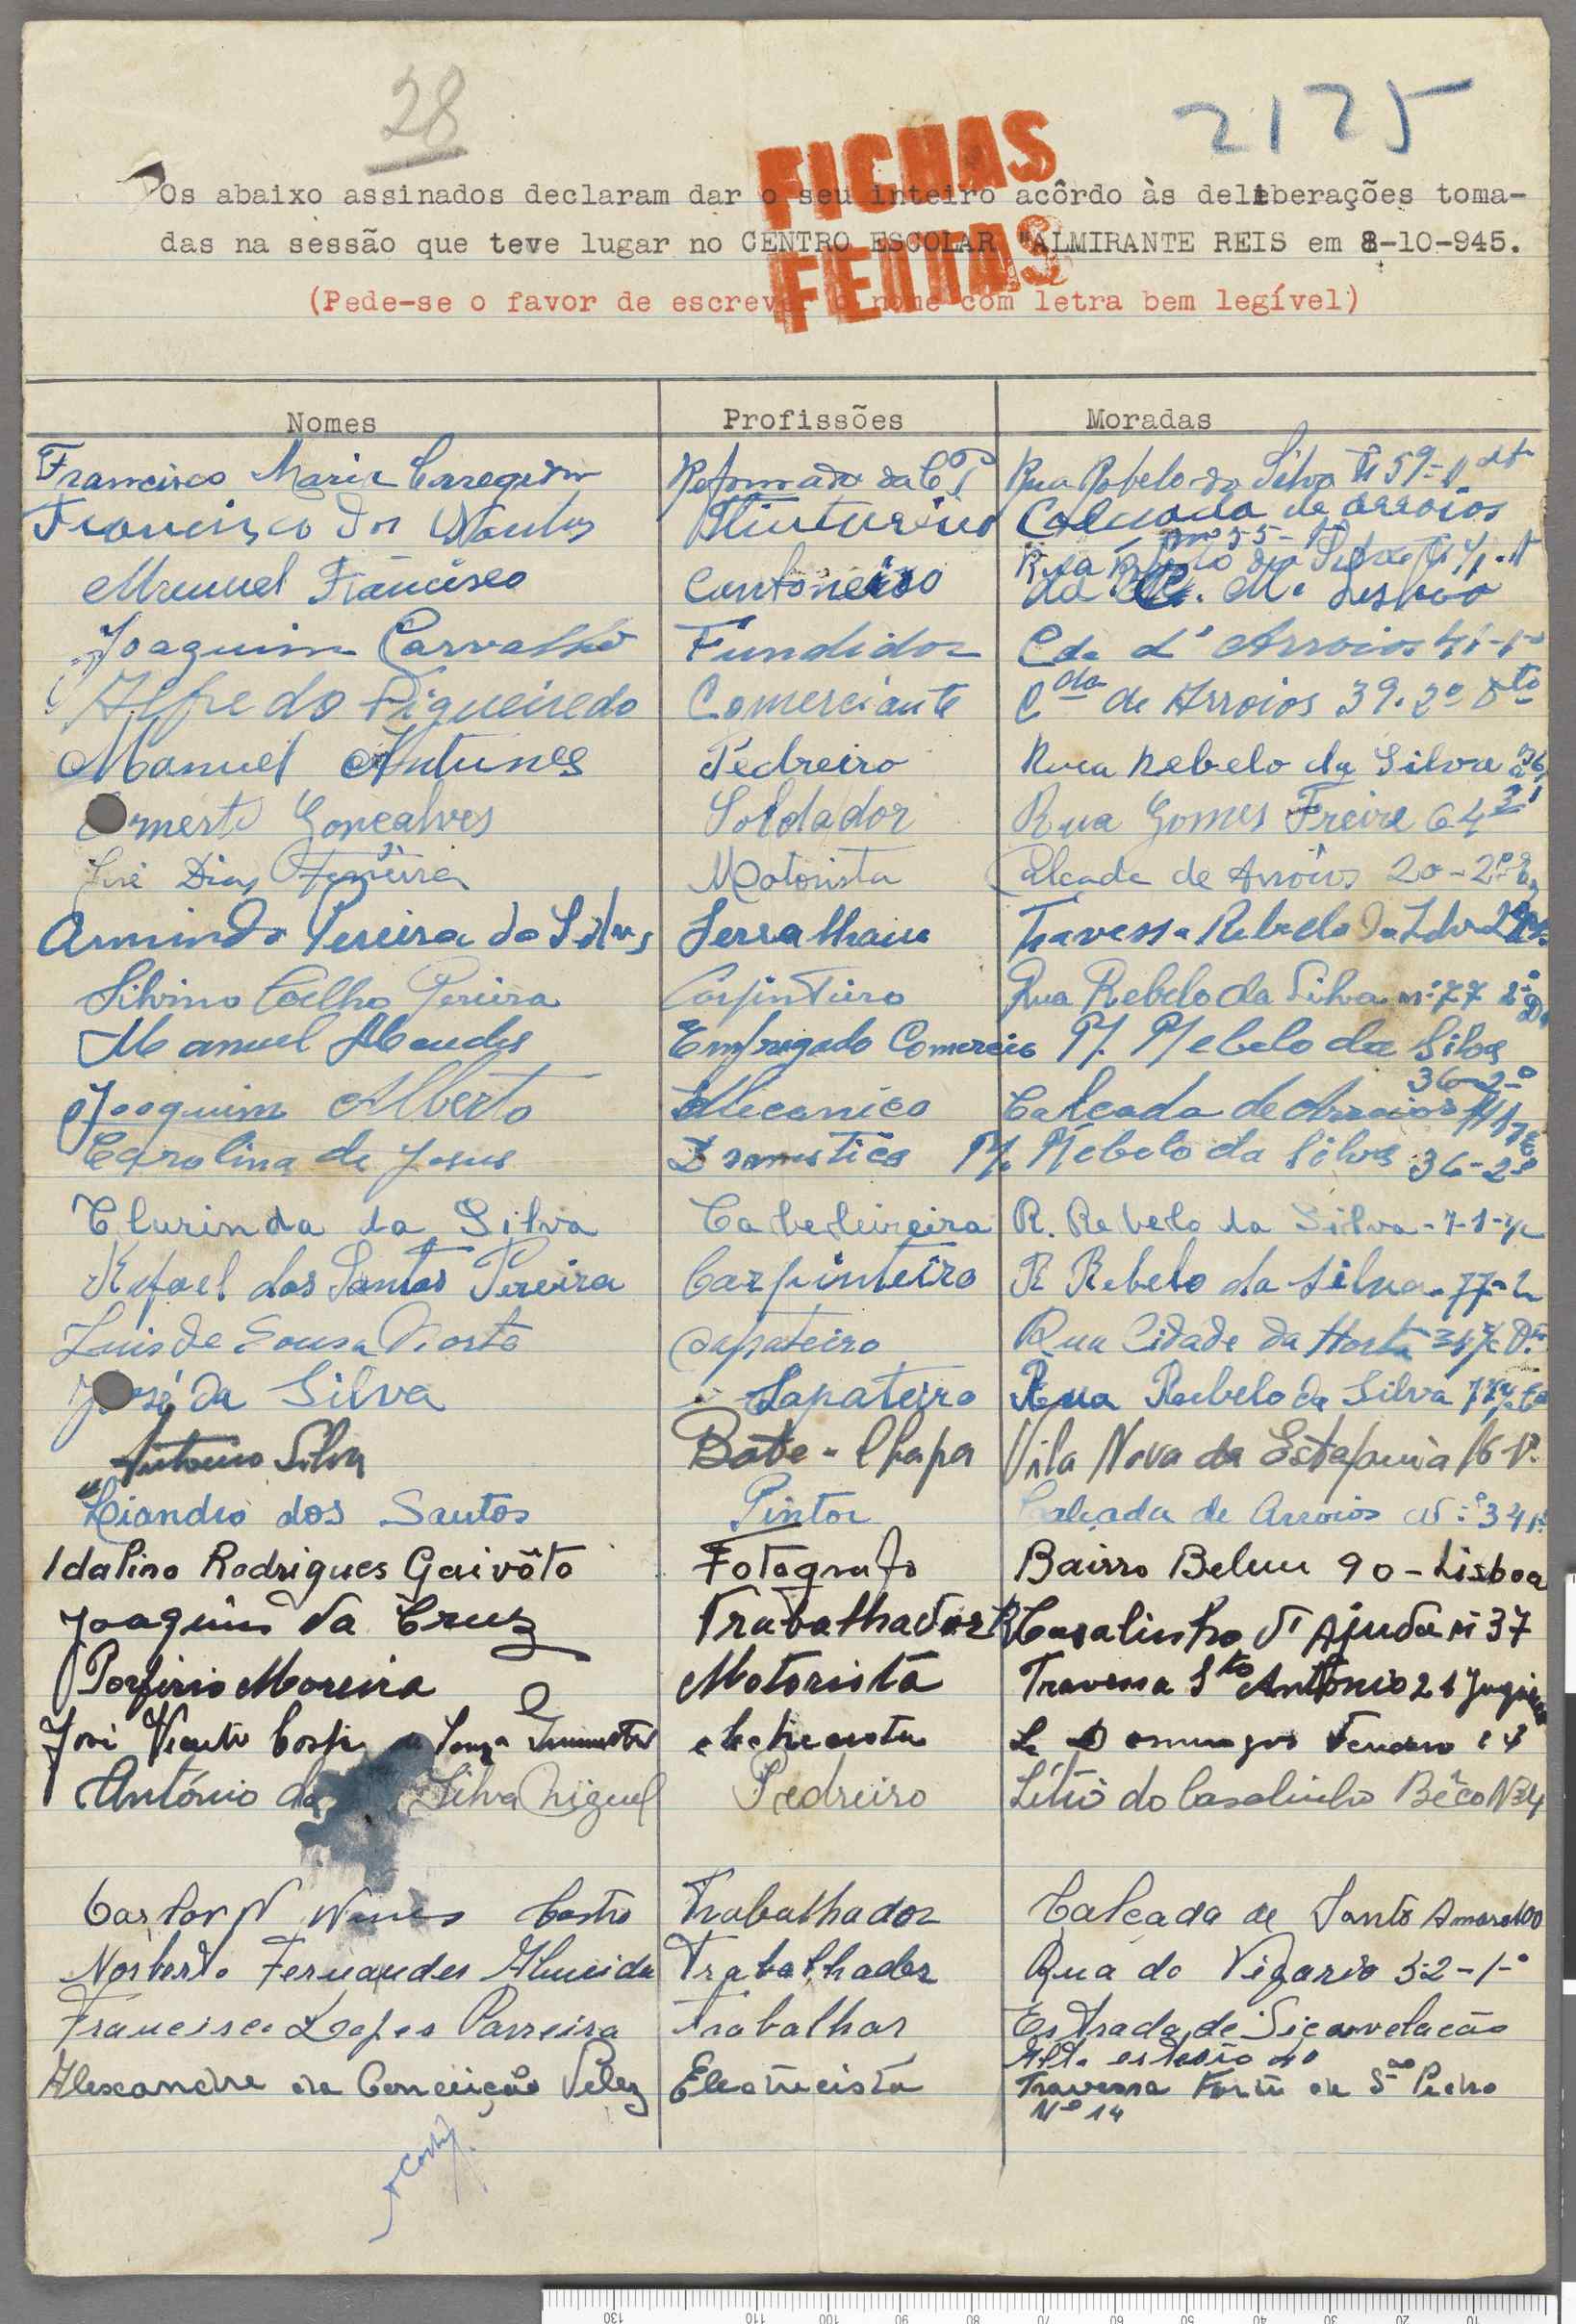 28
2125
FICHAS
FEITAS
Os abaixo assinados declaram dar o seu inteiro acôrdo às deliberações toma-
das na sessão que teve lugar no CENTRO ESCOLAR "ALMIRANTE REIS em 8-10-945.
(Pede-se o favor de escrever o nome com letra bem legível)
Nomes Profissões Moradas
Francisco Maria Reformado da CP Rua Rebelo da Silva 59-
Francisco dos Santos Calçada de arroios
Manuel Francisco Cantoneiro
da C. M. Lisboa
Joaquim Carvalho Fundidor C da d' Arroios 41-1º
Alfredo Figueiredo Comerciante C da de Arroios 39. 2º Dto
Manuel Antunes Pedreiro Rua Rebelo da Silva 36
Ernesto Gonçalves Soldador Rua Gomes Freire 64
José Dias Ferreira Motorista Calçada de Arroios 20-2º
Armindo Pereira da Silva Serralheiro Travessa Rebelo da Silva
Silvino Coelho Pereira Carpinteiro Rua Rebelo da Silva nº 77
Manuel Mendes Empregado Comercio R. Rebelo da Silva
36-2º
Joaquim Alberto Mecanico Calçada de Arroios
Carolina de Jesus Domestica R. Rebelo da Silva 36-2º
Clurinda da Silva Cabeleireira R. Rebelo da Silva
Rafael dos Santos Pereira Carpinteiro R Rebelo da Silva-77-2
Luis de Sousa Sapateiro Rua Cidade da Horta
José da Silva Sapateiro Rua Rebelo da Silva
Antonio Silva Bate-Chapa Vila Nova da Estefania 16
Liandro dos Santos Pintor Calçada de Arroios Nº 34
Idalino Rodrigues Gaivôto Fotografo Bairro Belem 90-Lisboa
Joaquim da Cruz Trabalhador Casalinho d' Ajuda nº 37
Porfirio Moreira Motorista Travessa Sto António 21
José electricista
António da Silva Miguel Pedreiro Sitio do Casalinho Bêco Nº4
Nunes Castro Trabalhador Calçada de Santo Amaro 100
Norberto Fernandes Almeida Trabalhador Rua do Vigario 52-1º
Francisco Lopes Parreira Trabalhar Estrada de
Alexandre da Conceição Velez Electricista Travessa Forte de S. Pedro
Nº 14